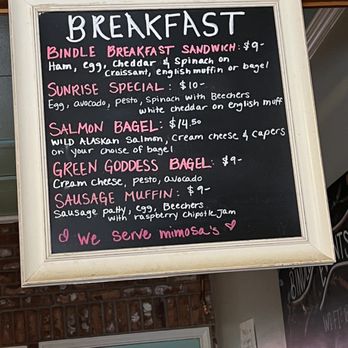 BREAKFAST
BINDLE BREAKFAST SANDWICH: $9-
Ham, egg, Cheddar & Spinach on
Croissant, english muffin or bagel
SUNRISE SPECIAL: $10-
Egg, avocado, pesto, Spinach with Beechers
white cheddar on english muff
SALMON BAGEL: $14.50
WILD ALASKAN Salmon, Cream cheese & Capers
on your choise of bagel
GREEN GODDESS BAGEL: $9-
Cream cheese, pesto, avocado
SAUSAGE MUFFIN: $9-
Sausage patty, egg, Beechers
with raspberry chipotle Jam
We serve mimosa's